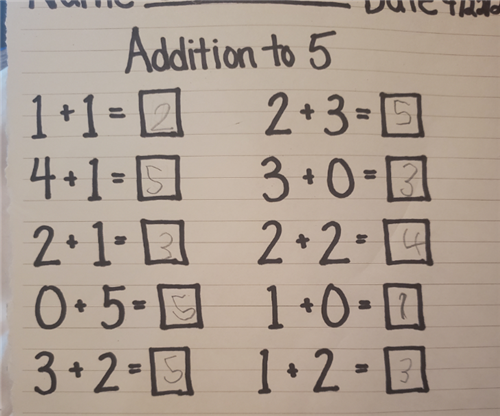 Name Date
Addition to 5
1+1= 2 2+3= 5
4+1= 5 3+0= 3
2+1= 3 2+2= 4
0+5= 5 1+0= 1
3+2= 5 1+2= 3